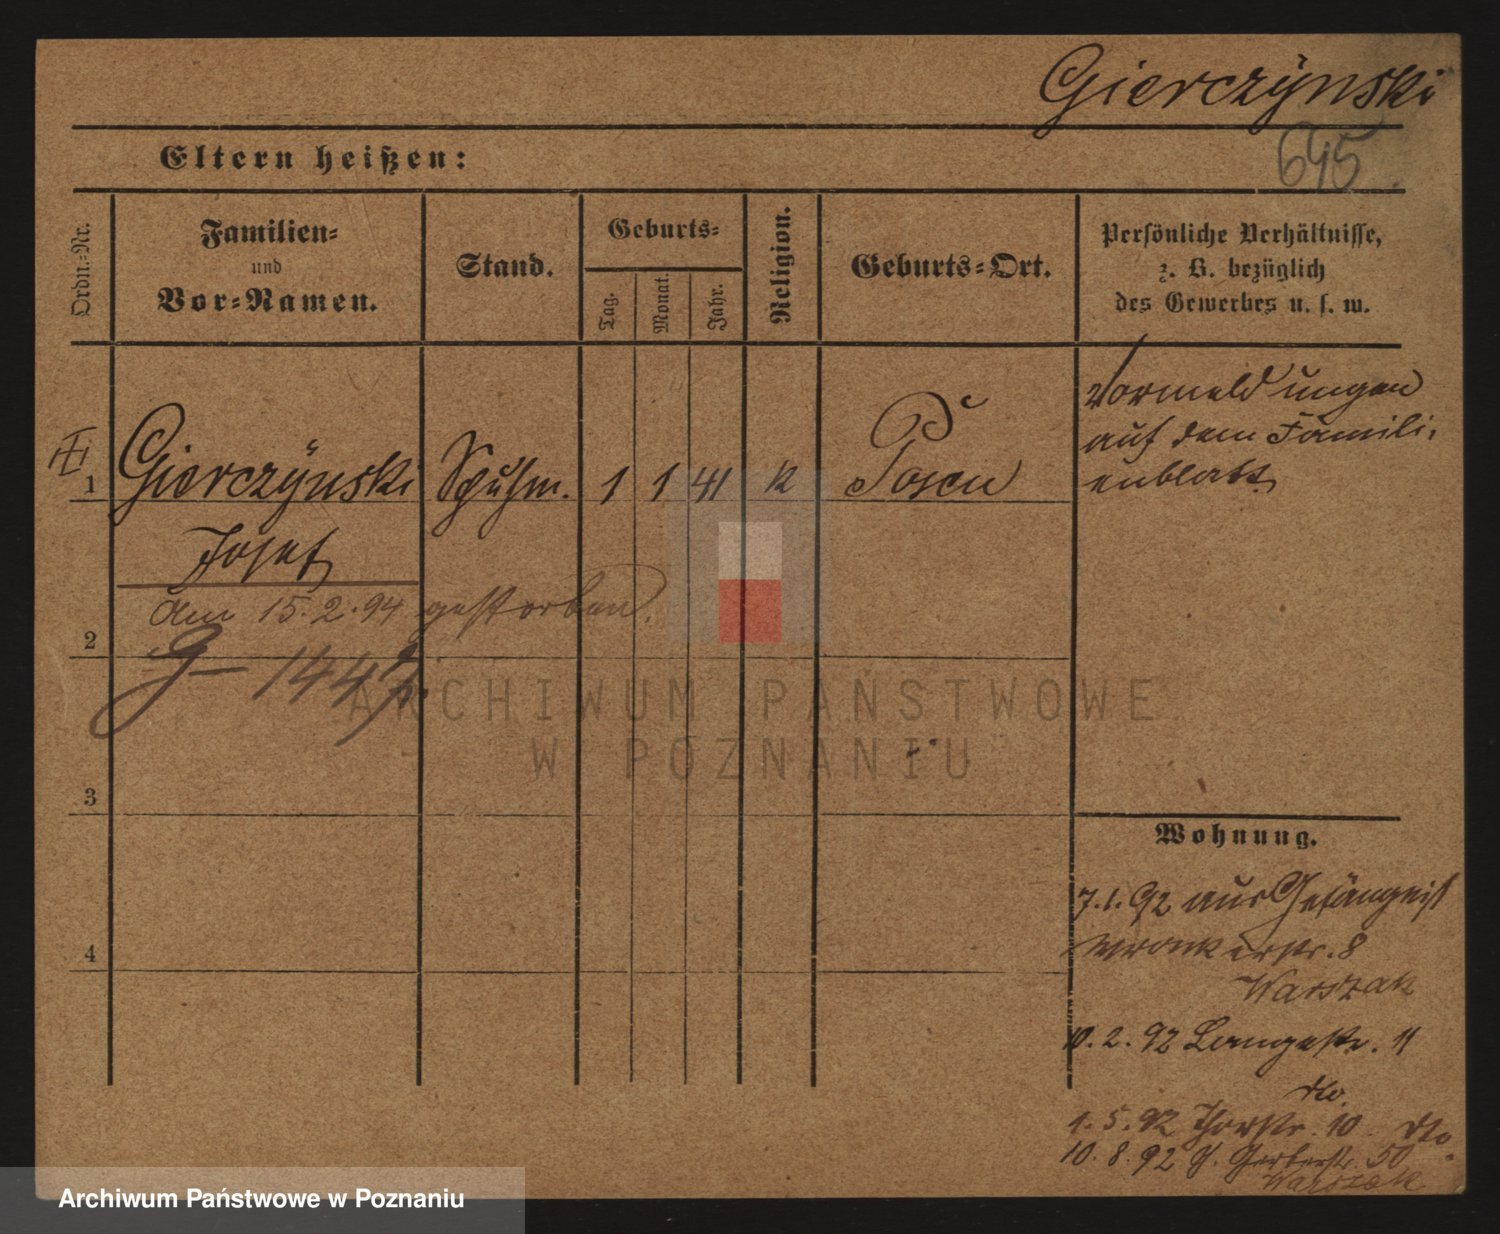 Gierczÿnski
645.
Eltern heißen:
Ordn.-Nr.
Familien-
und
Vor-Namen.
Stand.
Geburts-
Tag.
Monat.
Jahr.
Religion.
Geburts-Ort.
Persönliche Verhältnisse,
z. B. bezüglich
des Gewerbes u. s. w.
1
Gierczÿnski
Josef
Schuhm.
1
1
41
k
Posen
Vormeldungen
auf dem Famili-
enblatt.
am 15.2.94 gestorben.
2
3
4
Wohnung.
7.1.92 aus Gefängniß
Wronkerstr. 8
Warszak
10.2.92 Langestr. 11
dto.
1.5.92 Thorstr. 10 dto.
10.8.92 Gerberstr. 50
Warszak
ARCHIWUM PAŃSTWOWE
W POZNANIU
Archiwum Państwowe w Poznaniu